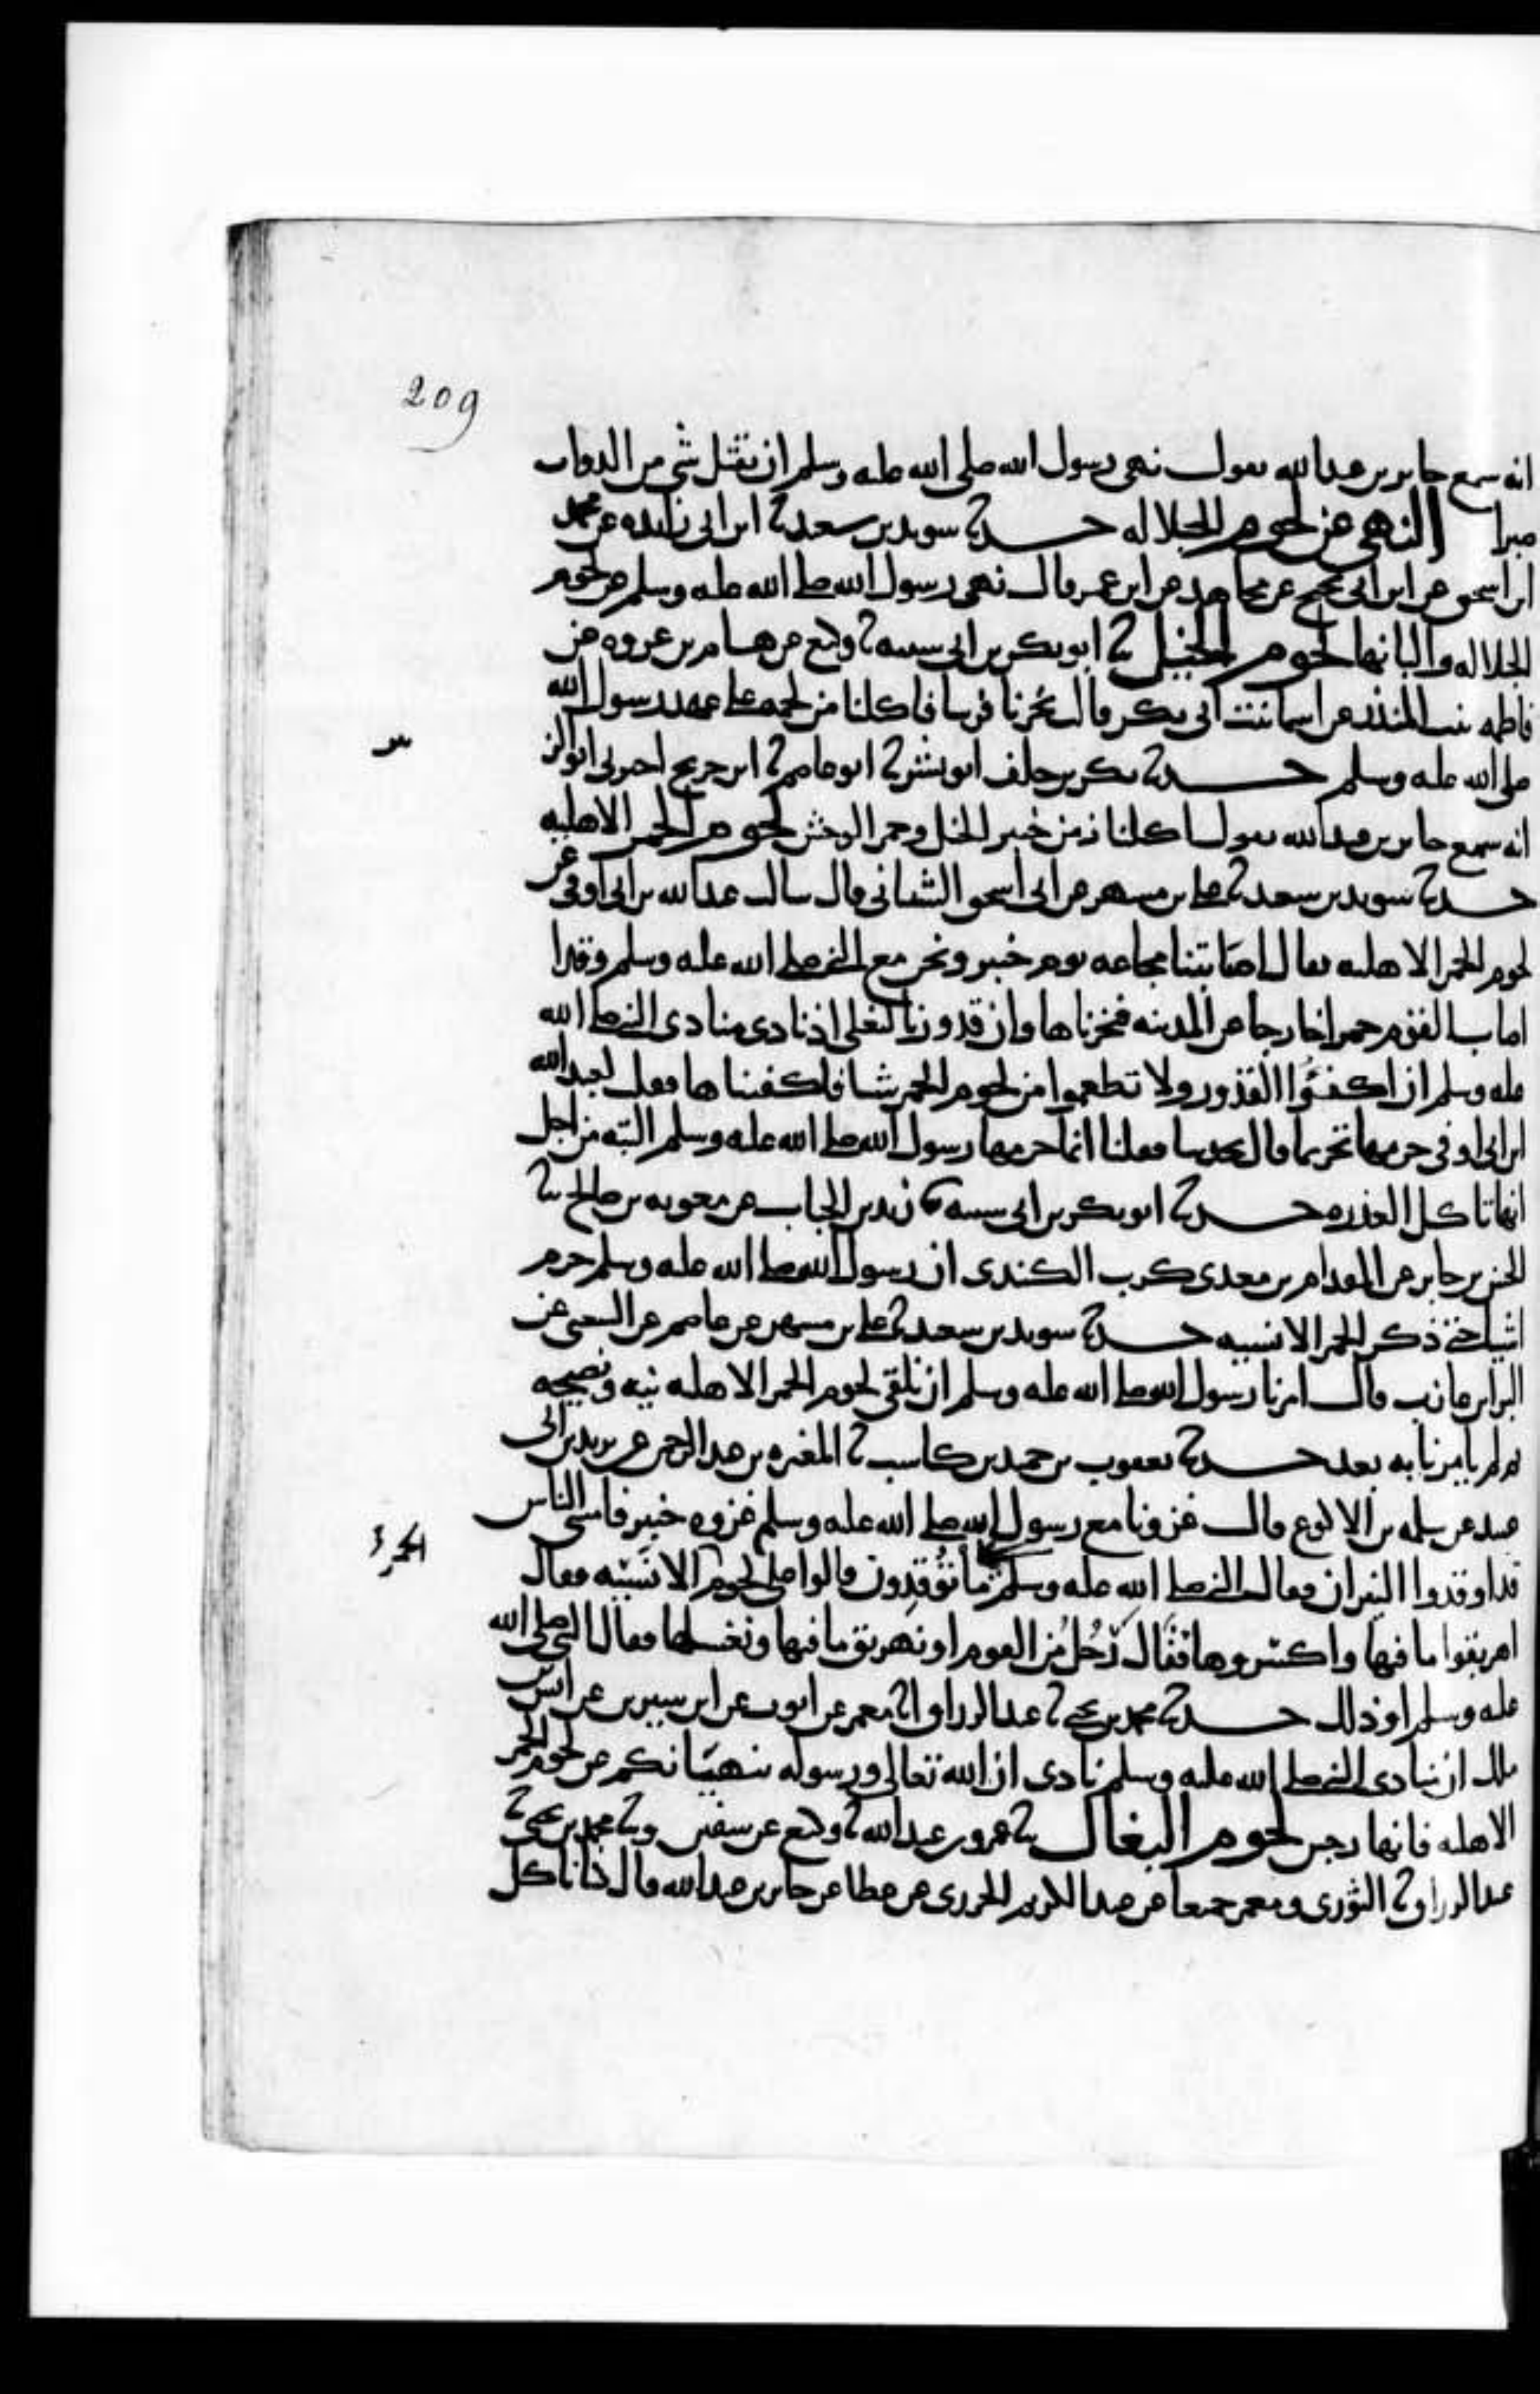 209
انه سمع جابر بن عبدالله يقول نهى رسول الله صلى الله عليه وسلم ان يقتل شي من الدواب
صبرا النهي عن لحوم الجلاله حدثنا سويد بن سعيد ثنا ابن ابي زائده عن محمد
ابن اسحق عن ابن ابي نجيح عن مجاهد عن ابن عمر قال نهى رسول الله صلى الله عليه وسلم عن لحوم
الجلاله والبانها لحوم الخيل ثنا ابو بكر بن ابي شيبه ثنا وكيع عن هشام بن عروه عن
فاطمه بنت المنذر عن اسما بنت ابي بكر قالت نحرنا فرسا فاكلنا من لحمه على عهد رسول الله
صلى الله عليه وسلم حدثنا بكر بن خلف ابو بشر ثنا ابو عاصم ثنا ابن جريج اخبرني ابو الز
بير
انه سمع جابر بن عبدالله يقول اكلنا زمن خيبر الخيل وحمر الوحش لحوم الحمر الاهليه
حدثنا سويد بن سعيد ثنا علي بن مسهر عن ابي اسحق الشيباني قال سالت عبدالله بن ابي اوفى عن
لحوم الحمر الاهليه فقال اصابتنا مجاعه يوم خيبر ونحن مع النبي صلى الله عليه وسلم وقد ا
اصاب القوم حمرا خارجا من المدينه فنحرناها وان قدورنا لتغلي اذ نادى منادي النبي صلى الله
عليه وسلم ان اكفئوا القدور ولا تطعموا من لحوم الحمر شيا فاكفيناها فقلت لعبدالله
ابن ابي اوفى حرمها تحريما قال تحدثنا فقلنا انما حرمها رسول الله صلى الله عليه وسلم البته من اجل
انها تاكل العذره حدثنا ابو بكر بن ابي شيبه ثنا زيد بن الحباب عن معويه بن صالح ثنا
الحسن بن جابر عن المقدام بن معدي كرب الكندي ان رسول الله صلى الله عليه وسلم حرم
اشيا حتى ذكر الحمر الانسيه حدثنا سويد بن سعيد ثنا علي بن مسهر عن عاصم عن الشعبي عن
البرا بن عازب قال امرنا رسول الله صلى الله عليه وسلم ان نلقي لحوم الحمر الاهليه نيه ونضيجه
ثم لم يامرنا به بعد حدثنا يعقوب بن حميد بن كاسب ثنا المغيره بن عبدالرحمن عن يزيد بن ابي
عبيد عن سلمه بن الاكوع قال غزونا مع رسول الله صلى الله عليه وسلم غزوه خيبر فامسى الناس
قد اوقدوا النيران فقال النبي صلى الله عليه وسلم ما توقدون قالوا على لحوم الانسيه فقال
الحمر
اهريقوا ما فيها واكسروها فقال رجل من القوم او نهريق ما فيها ونغسلها فقال النبي صلى الله
عليه وسلم او ذلك حدثنا محمد بن يحيى ثنا عبدالرزاق انا معمر عن ايوب عن ابن سيرين عن انس بن
ملك ان منادي النبي صلى الله عليه وسلم نادى ان الله تعالى ورسوله ينهيانكم عن لحوم الحمر
الاهليه فانها رجس لحوم البغال ثنا عمرو بن عبدالله ثنا وكيع عن سفين وثنا محمد بن يحيى ثنا
عبدالرزاق ثنا الثوري ومعمر جميعا عن عبدالكريم الجزري عن عطا عن جابر بن عبدالله قال كنا ناكل